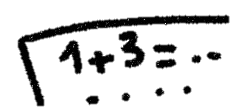 1+3=..
....